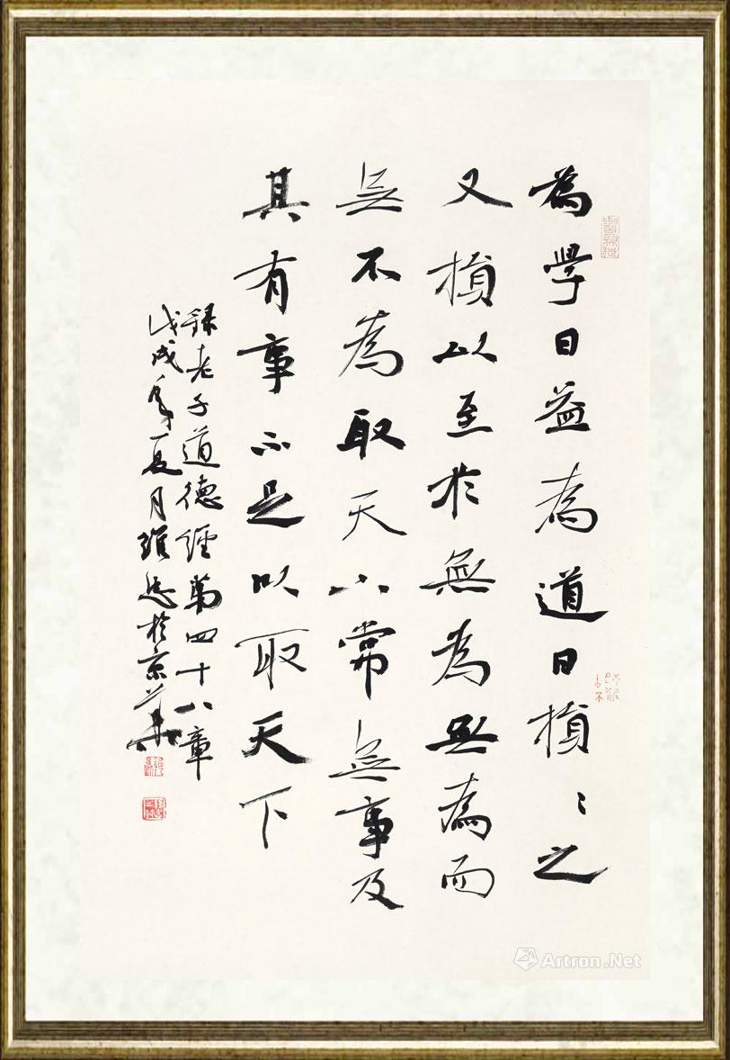 為學日益為道日損〻之
又損以至於無為無為而
無不為取天下常無事及
其有事不足以取天下
錄老子道德經第四十八章
戊戌年夏月維忠於京華
Artron.Net